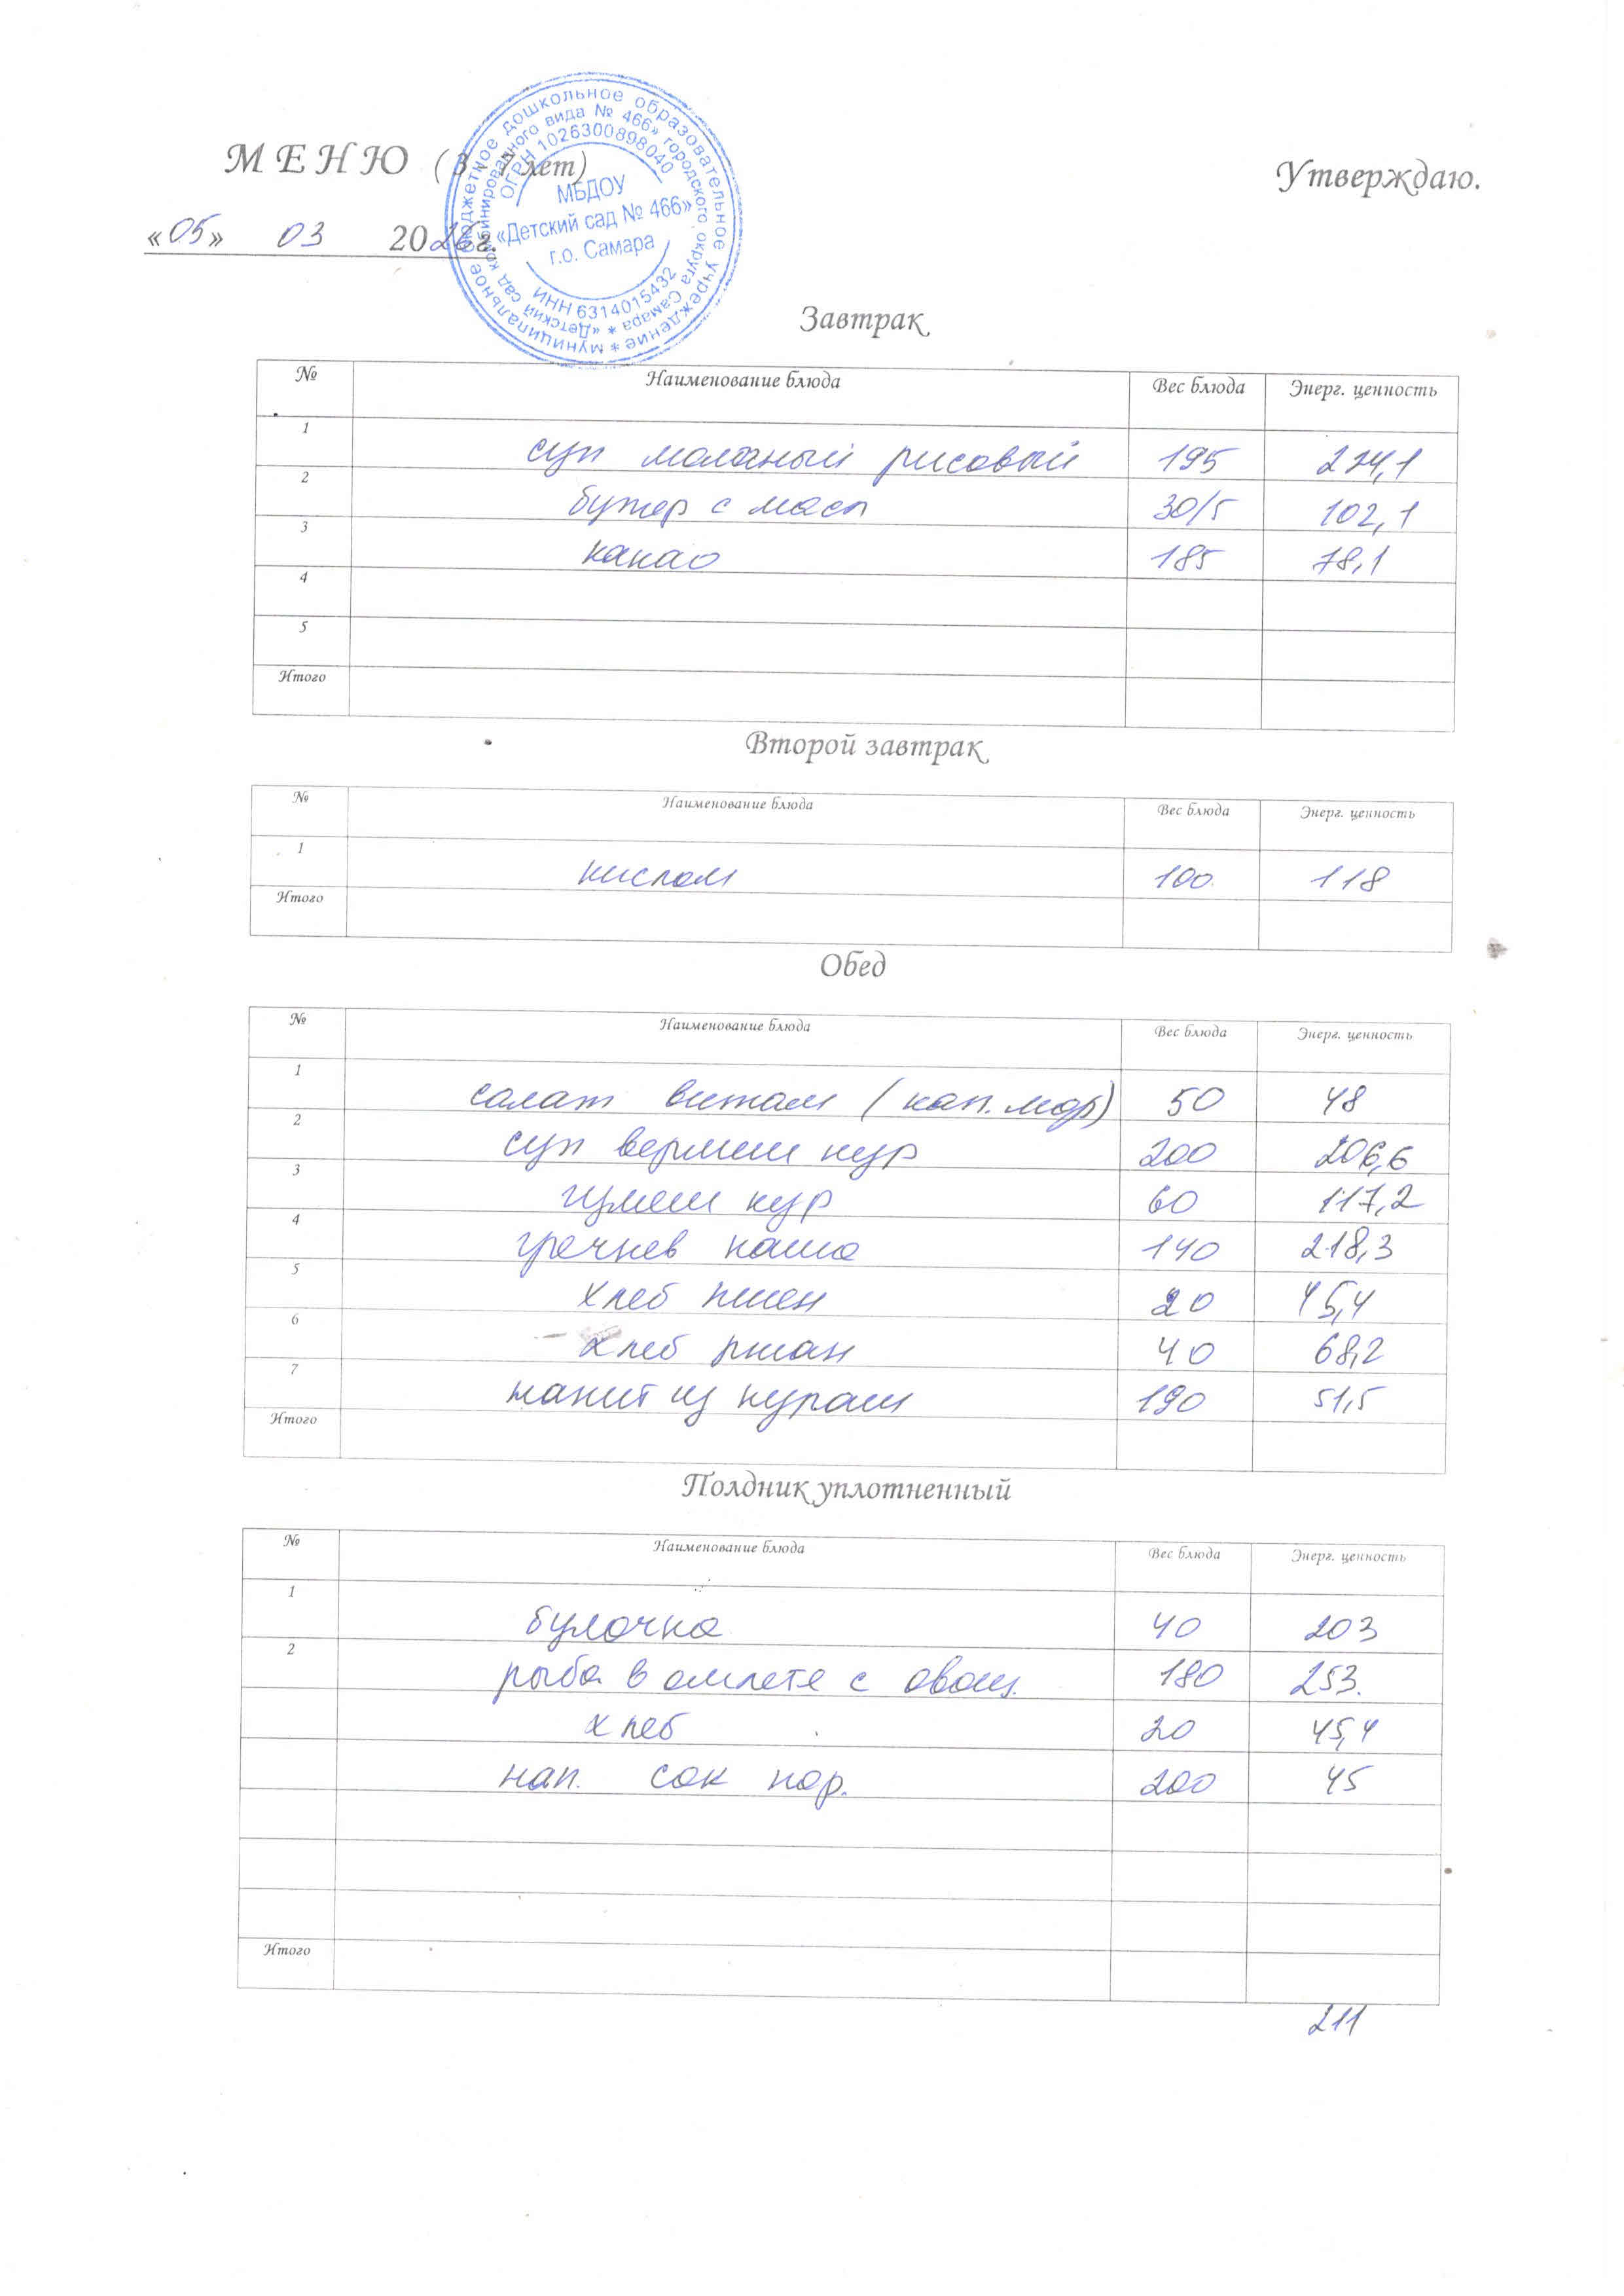 МЕНЮ (3-7 лет)
Утверждаю.
«05» 03 2026г.
муниципальное бюджетное дошкольное образовательное учреждение *
«Детский сад комбинированного вида № 466» городского округа Самара *
ОГРН 1026300898040
МБДОУ
«Детский сад № 466»
г.о. Самара
ИНН 6314015432
Завтрак
№ Наименование блюда Вес блюда Энерг. ценность
1 суп молочный рисовый 195 224,1
2 бутер с масл 30/5 102,1
3 какао 185 78,1
4
5
Итого
Второй завтрак
№ Наименование блюда Вес блюда Энерг. ценность
1 кислом 100 118
Итого
Обед
№ Наименование блюда Вес блюда Энерг. ценность
1 салат витам (кап. мор) 50 48
2 суп вермиш кур 200 206,6
3 гуляш кур 60 117,2
4 гречнев каша 140 218,3
5 хлеб пшен 20 45,4
6 хлеб ржан 40 68,2
7 напит из кураги 190 51,5
Итого
Полдник уплотненный
№ Наименование блюда Вес блюда Энерг. ценность
1 булочка 40 203
2 рыба в омлете с овощ. 180 253.
хлеб 20 45,4
нап. сок пор. 200 45
Итого
211